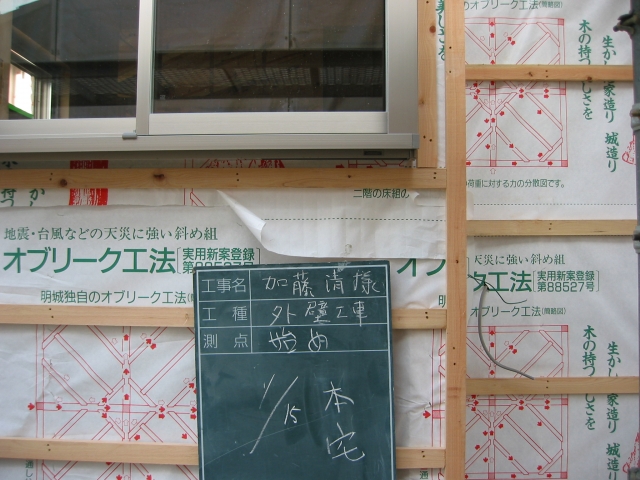 のオブリーク工法(簡略図)
美しさを
木の持つ美しさを
生かし
家造り
城造り
の荷重に対する力の分散図です。
二階の床組の
木の持つ
生かし
地震・台風などの天災に強い斜め組
オブリーク工法
実用新案登録
第88527号
明城独自のオブリーク工法
オブ
天災に強い斜め組
ク工法
実用新案登録
第88527号
オブリーク工法(簡略図)
木の持つ美しさを
生かし
家造り
城造り
工事名 加藤清様
工種 外壁工事
測点 始め
1/15 本宅